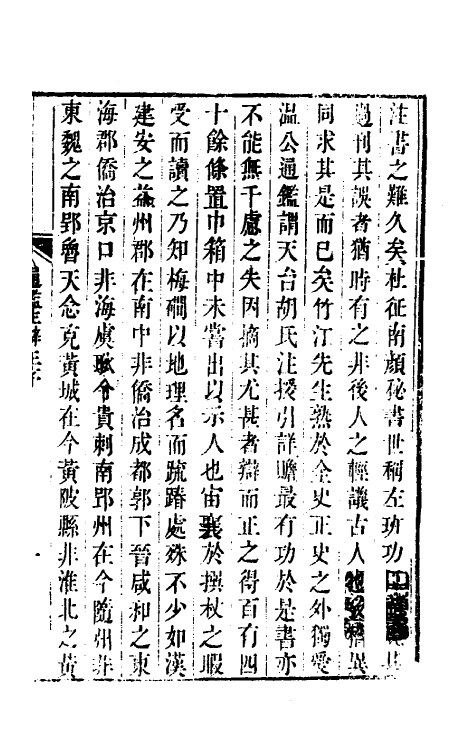 注書之難久矣杜征南顏秘書世稱左班功臣
過刊其誤者猶時有之非後人之輕議古人也
同求其是而已矣竹汀先生熟於全史正史之外獨愛
温公通鑑謂天台胡氏注援引詳贍最有功於是書亦
不能無千慮之失因摘其尤甚者辯而正之得百有四
十餘條置巾箱中未嘗出以示人也宙襄於撰杖之暇
受而讀之乃知梅磵以地理名而疏踳處殊不少如漢
建安之益州郡在南中非僑治成都郭下晉咸和之東
海郡僑治京口非海虞耿令貴刺南郢州在今隨州非
東魏之南郢魯天念克黃城在今黃陂縣非淮北之黃
通鑑注辯正序